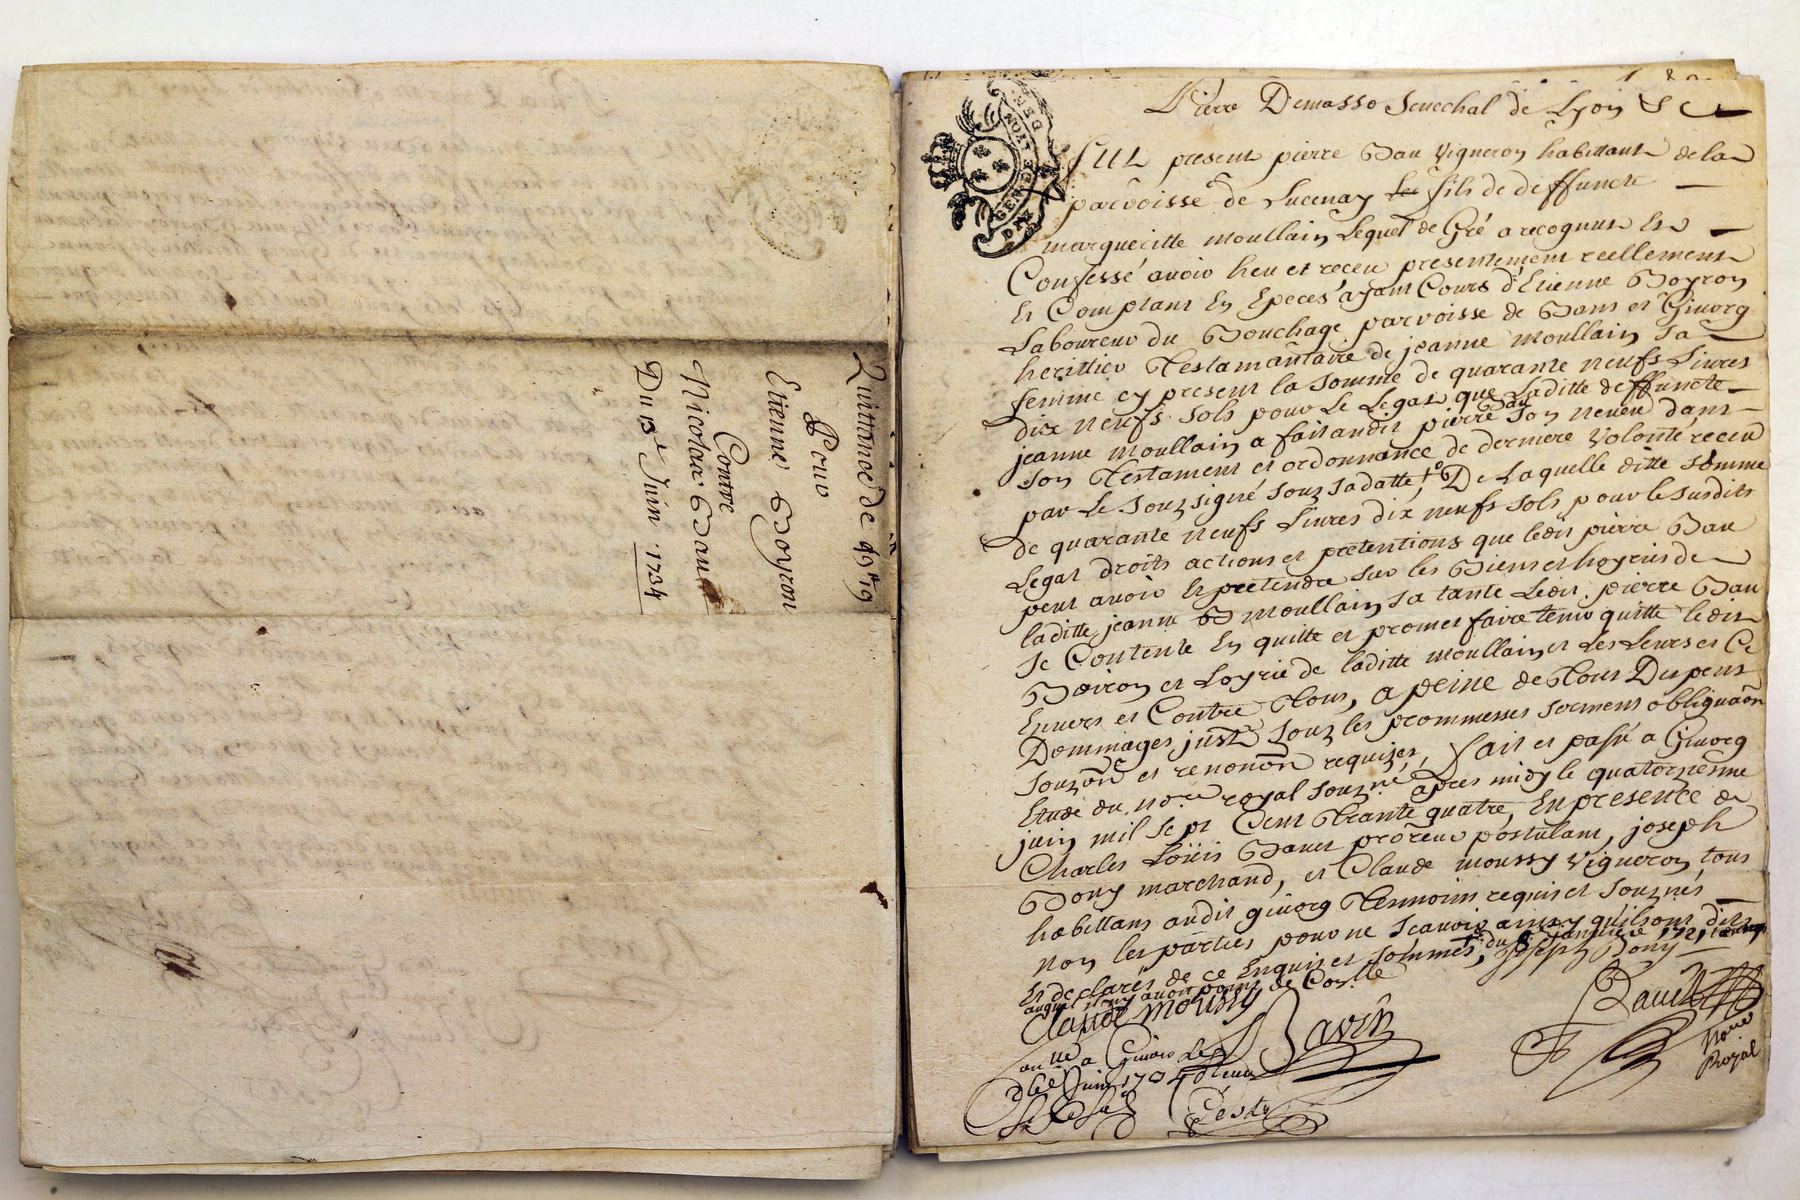 Quittance de 49# 19
Pour
Etienne Boyron
Contre
Nicolas Bau
Du 13e Juin 1734
GEN DE LYON
Pierre Demasso Senechal de Lyon &
FUT present pierre Bau vigneron habittant de la
parroisse de Lucenay fils de deffuncte
margueritte moullain Lequel de Gré a recognut Et
Confessé avoir heu et receu presentement reellement
Et Comptant En Epeces ayant Cours d'Etienne Boyron
Laboureur du Bouchage parroisse de Bans et Givorg
herittier Testamantaire de jeanne moullain sa
femme cy present la somme de quarante neufs Livres
dix neufs sols pour Le Legat que Laditte deffuncte
jeanne moullain a fait audit pierre Bau son neveu dans
son Testament et ordonnance de derniere volonté receu
par Le souzsigné souz sa datte De Laquelle ditte somme
de quarante neufs Livres dix neufs sols pour le susdit
Legat droits actions et pretentions que ledit pierre Bau
peut avoir Et pretendre sur les Biens et hoyries de
laditte jeanne moullain sa tante Ledit pierre Bau
se Contente En quitte et promet faire tenir quitte ledit
Boiron et Loyrie de laditte moullain et Les Leurs et Ce
Envers et Contre Tous, a peine de Tous Despens
Dommages jusť souz les prommesses serment obligaôn
souzôn et renonôn requizes, Fait et passé a Givorg
Etude du nore royal souzné apres midy le quatorzienme
juin mil sept Cent Trante quatre, En presence de
Charles Loüis Bauet proreur postulant, joseph
Bony marchand, et Claude moussy vigneron, tous
habittans audit givorg Temmoins requis et souznés
non les parties pour ne scavoir ainsy qu'ils ont dit
Et declarés de ce Enquis et sommés, du 8 janvier 1721
Joseph Bony
Claude moussy
Bavet
Ravin
Nore
Royal
a Givors Le
Juin 1734